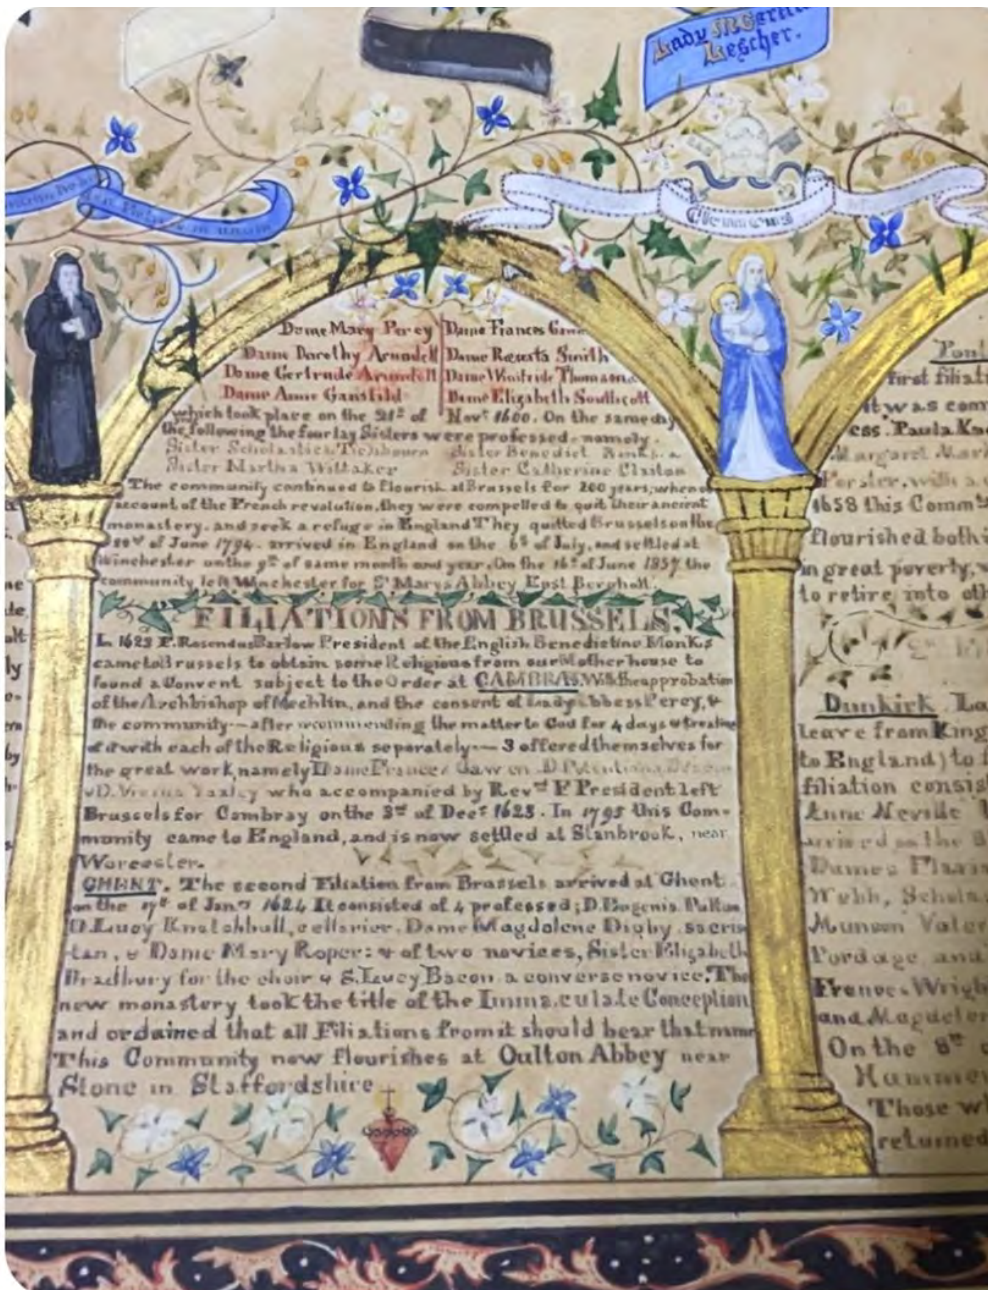 Lady
Lescher.
Clemens
Dame Mary Percy Dame Frances
Dame Dorothy Arundell Dame Renata Smith
Dame Gertrude Arundell Dame Winifride Thomson
Dame Anne Gansfild Dame Elizabeth Southcott
which took place on the 21st of Novr 1600. On the same day
the following the four lay Sisters were professed, namely.
Sister Scholastica Tichbourn Sister Benedict
Sister Martha Wittaker Sister Catherine Claxton
The community continued to flourish at Brussels for 200 years, when on
account of the French revolution, they were compelled to quit their ancient
monastery, and seek a refuge in England They quitted Brussels on the
of June 1794. arrived in England on the 6th of July, and settled at
Winchester on the of same month and year. On the 16th of June 1857 the
community left Winchester for St Mary's Abbey East Bergholt.
FILIATIONS FROM BRUSSELS.
1623 F. Rosendus Barlow President of the English Benedictine Monks
came to Brussels to obtain some Religious from our Mother house to
found a Convent subject to the Order at CAMBRAY. With the approbation
of the Archbishop of Mechlin, and the consent of Lady Abbess Percy, &
the community — after recommending the matter to God for 4 days & treating
of it with each of the Religious separately — 3 offered themselves for
the great work, namely Dame Frances Gawen. D. Potentiana Deacon
& D. Viviana Yaxley who accompanied by Revd F President left
Brussels for Cambray on the 3rd of Decr 1623. In 1795 this Com-
munity came to England, and is now settled at Stanbrook, near
Worcester.
GHENT. The second Filiation from Brussels arrived at Ghent
on the 17th of Jany 1624 It consisted of 4 professed; D. Eugenia
D. Lucy Knatchbull, cellarier. Dame Magdolene Digby. sacris
-tan, & Dame Mary Roper: & of two novices, Sister Elizabeth
Bradbury for the choir & S. Lucy Bacon a converse novice. The
new monastery took the title of the Immaculate Conception
and ordained that all Filiations from it should bear that name
This Community now flourishes at Oulton Abbey near
Stone in Staffordshire
first
it was
Paula
Margaret
with a
1658 this Comm
flourished both
in great poverty,
to retire into
Dunkirk
Leave from King
to England) to
filiation
Anne Neville
on the
Dames
Webb,
Munson
Pordage and
Wright
and
On the 8th
Those
returned